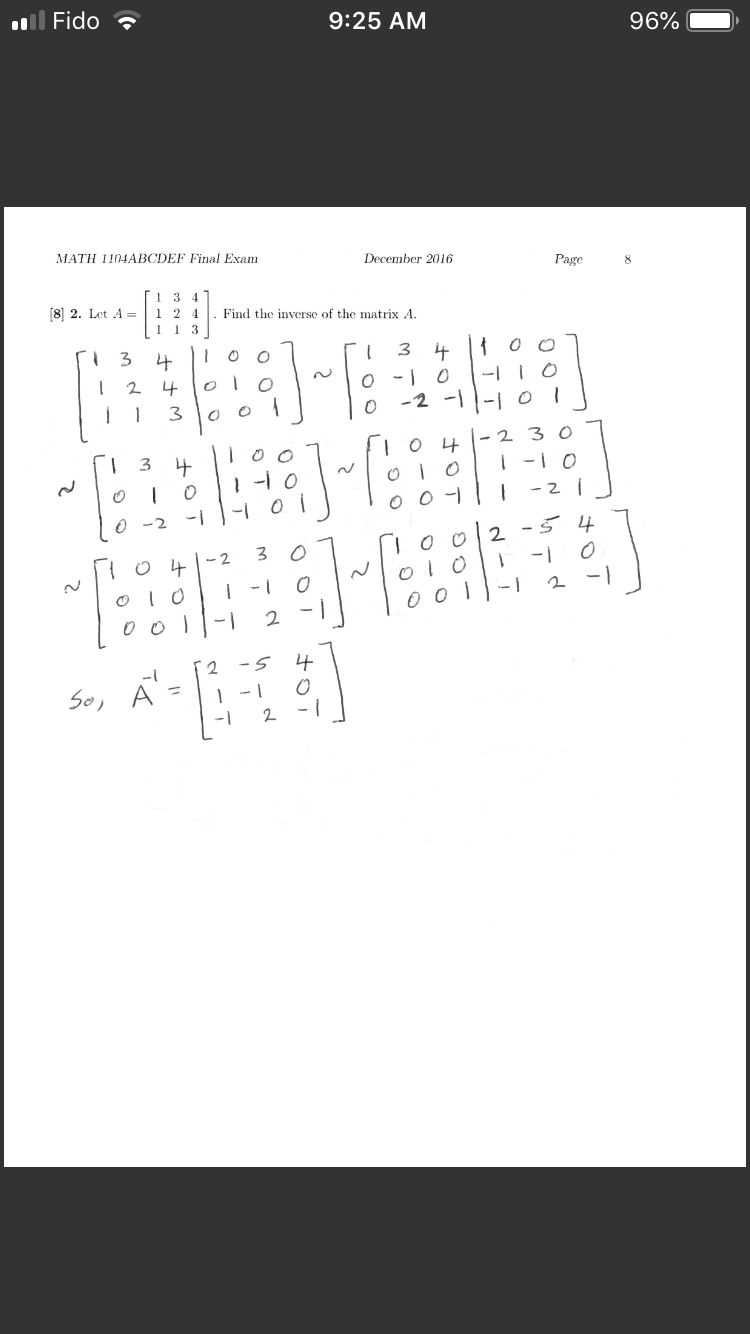 Fido 9:25 AM 96%
MATH 1104ABCDEF Final Exam December 2016 Page 8
[8] 2. Let A = [ 1 3 4 ; 1 2 4 ; 1 1 3 ] . Find the inverse of the matrix A.
[ 1 3 4 | 1 0 0 ] ~ [ 1 3 4 | 1 0 0 ]
[ 1 2 4 | 0 1 0 ] [ 0 -1 0 | -1 1 0 ]
[ 1 1 3 | 0 0 1 ] [ 0 -2 -1 | -1 0 1 ]
~ [ 1 3 4 | 1 0 0 ] ~ [ 1 0 4 | -2 3 0 ]
[ 0 1 0 | 1 -1 0 ] [ 0 1 0 | 1 -1 0 ]
[ 0 -2 -1 | -1 0 1 ] [ 0 0 -1 | 1 -2 1 ]
~ [ 1 0 4 | -2 3 0 ] ~ [ 1 0 0 | 2 -5 4 ]
[ 0 1 0 | 1 -1 0 ] [ 0 1 0 | 1 -1 0 ]
[ 0 0 1 | -1 2 -1 ] [ 0 0 1 | -1 2 -1 ]
So, A⁻¹ = [ 2 -5 4 ]
[ 1 -1 0 ]
[ -1 2 -1 ]